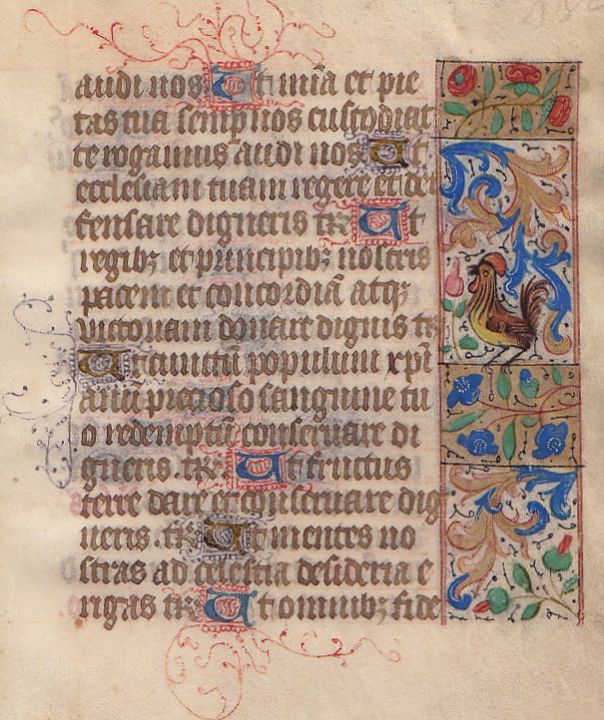 audi nos Ut mīa et pie
tas tua semp nos custodiat
te rogamus audi nos Ut
ecclesiam tuam regere et de
fensare digneris tr̄ Ut
regibꝫ et principibꝫ nostris
pacem et concordiā atqꝫ
victoriam donare dignis tr̄
Ut cunctū populum xpi
anū precioso sanguine tu
o redemptū conseruare di
gneris .tr̄ Ut fructus
terre dare et conseruare dig
neris .tr̄ Ut mentes no
stras ad celestia desideria e
rigas tr̄ Ut omnibꝫ fide